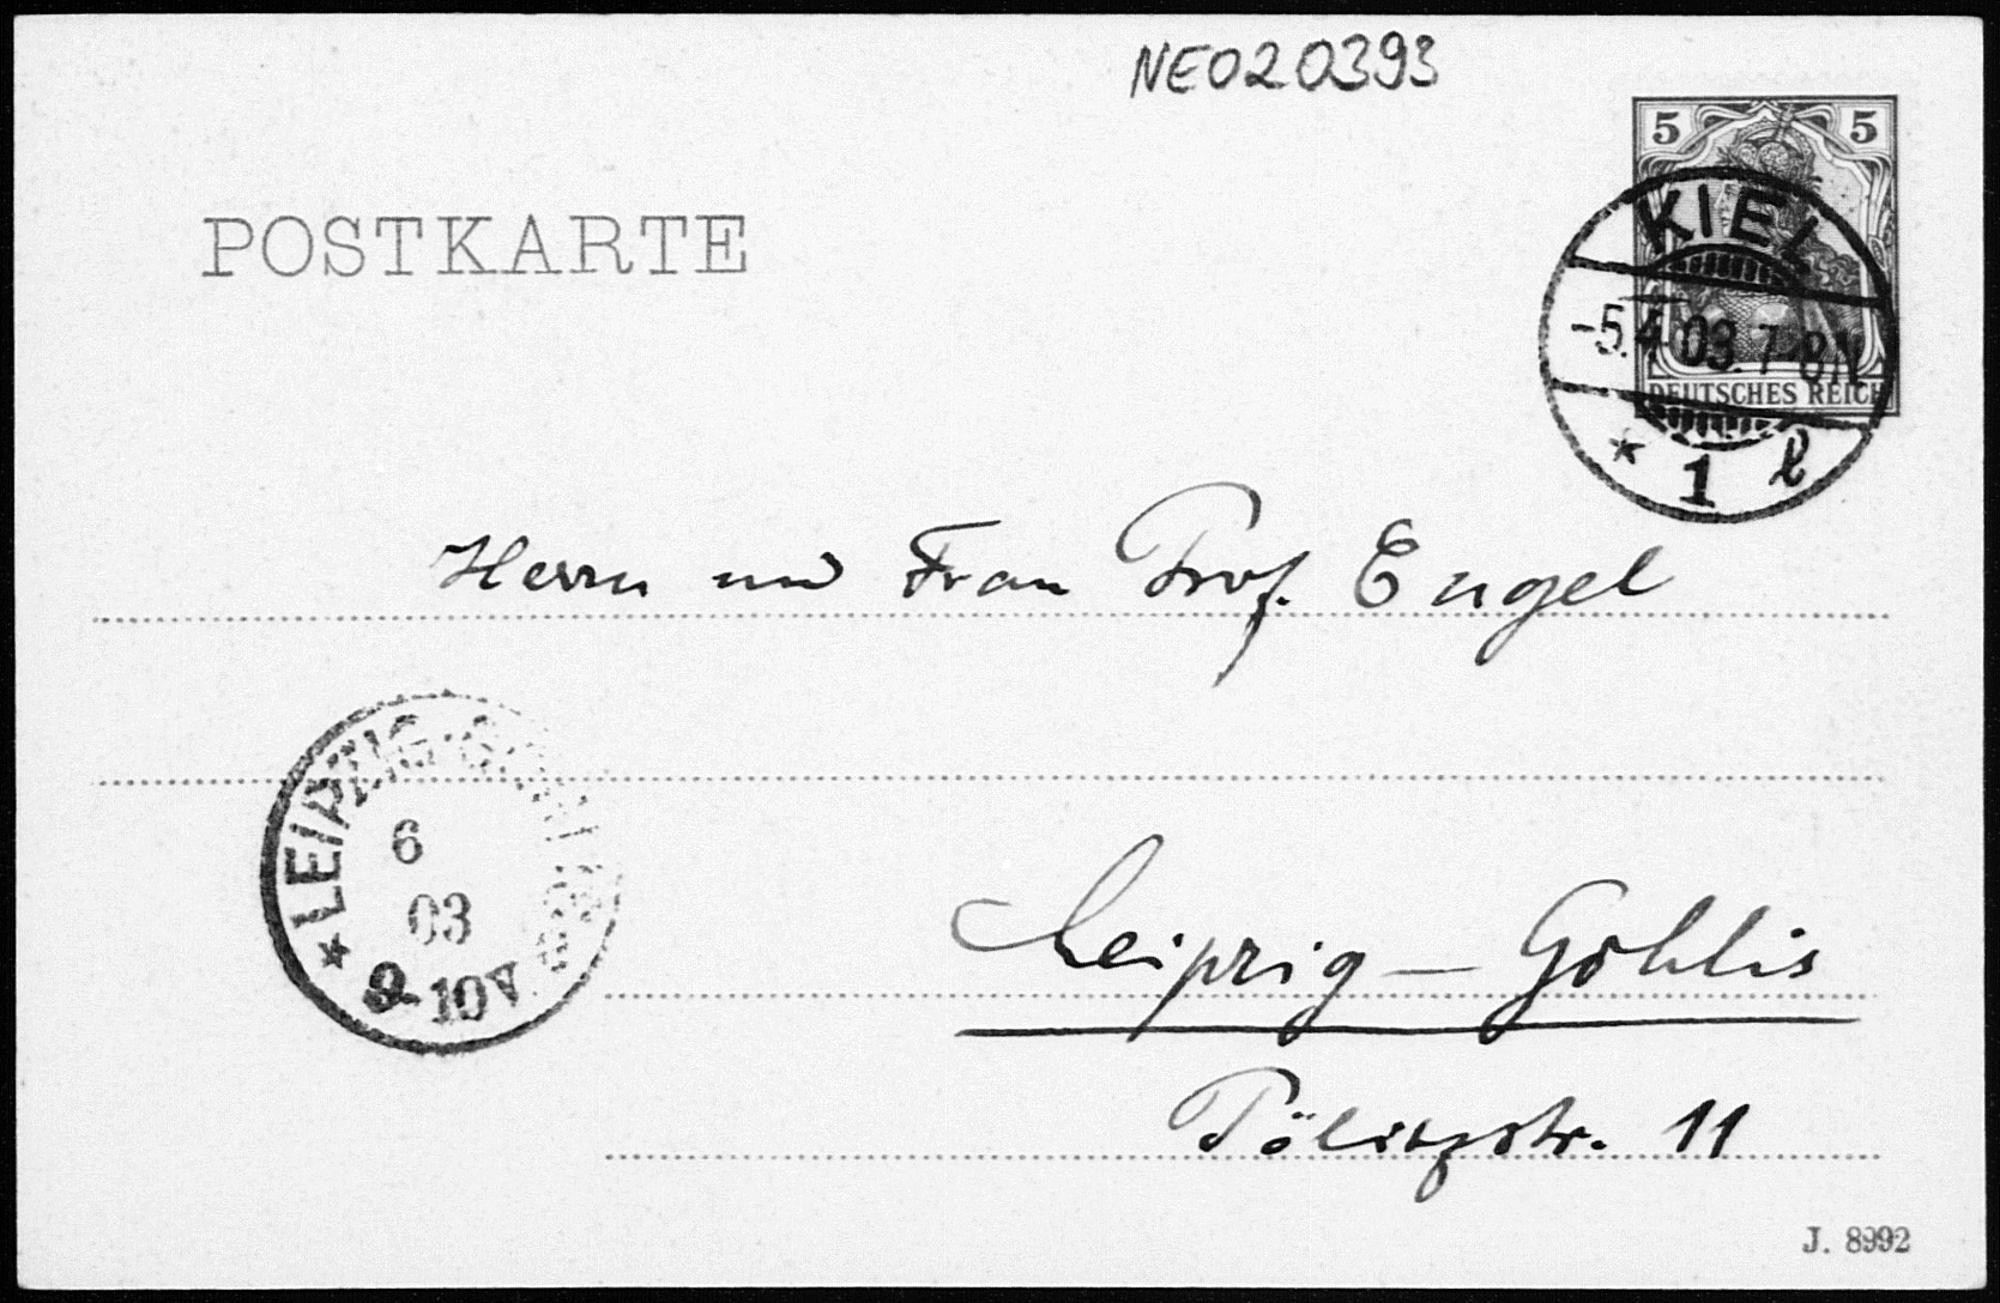 NE020393
5 5
POSTKARTE
KIEL
-5.4.03.7-8N.
DEUTSCHES REICH
* 1 l
Herrn und Frau Prof. Engel
* LEIPZIG-
6
03
9-10V.
Leipzig - Gohlis
Pölitzstr. 11
J. 8992